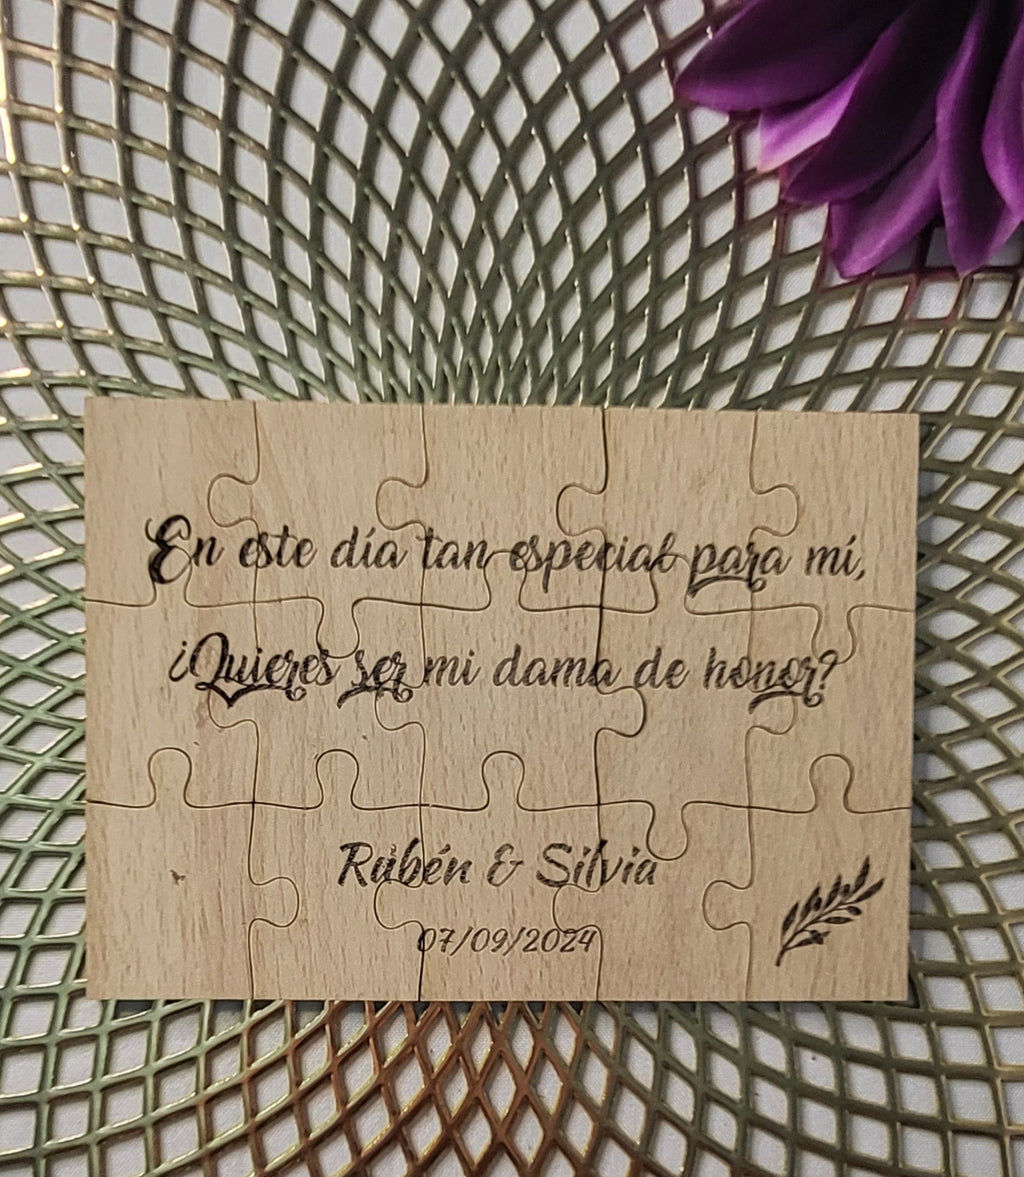 En este día tan especial para mí,
¿Quieres ser mi dama de honor?
Rubén & Silvia
07/09/2024